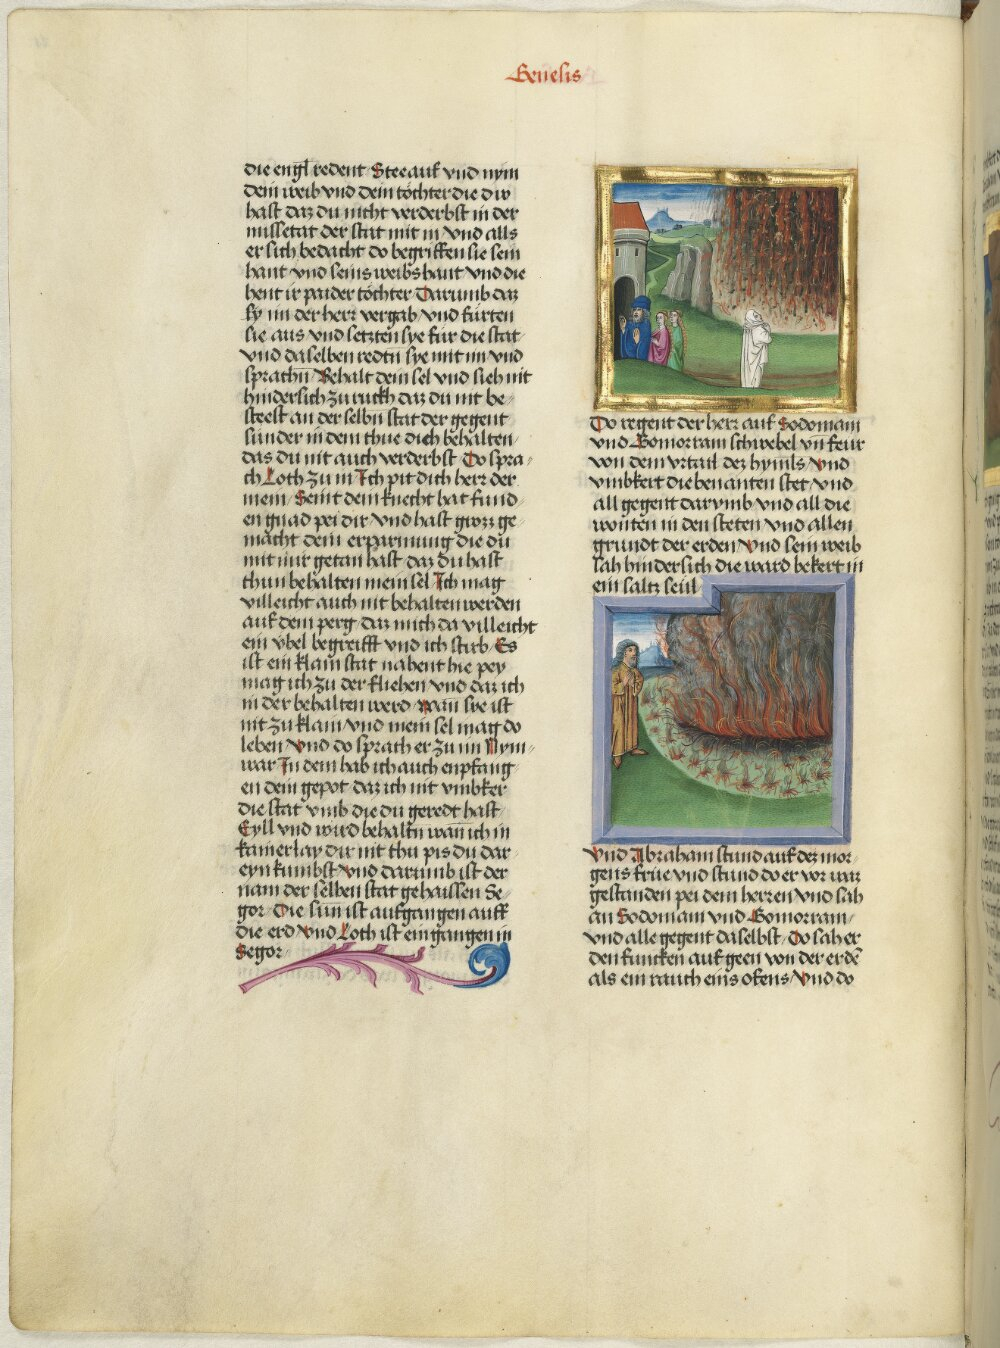 Genesis
die engl redent Stee auf vnd nym
dein weib vnd dein töchter die dw
hast daz du nicht verderbst in der
missetat der stat mit in vnd alls
er sich bedacht do begriffen sie sein
hant vnd seins weibs hant vnd die
hent ir paider töchter Darumb daz
sy im der herr vergab vnd fürten
sie aus vnd setzten sye für die stat
vnd daselben redtn sye mit im vnd
sprachn Behalt dein sel vnd sieh nit
hindersich zu ruckh daz du nit be-
steest an der selbn stat der gegent
sunder in dem thue dich behalten
das du nit auch verderbst Do spra-
ch Loth zu in Ich pit dich herr der
mein Seint dein knecht hat fund-
en gnad pei dir vnd hast grozz ge-
macht dein erparmung die du
mit mir getan hast daz du hast
thun behalten mein sel Ich mag
villeicht auch nit behalten werden
auf dem perg daz mich da villeicht
ein vbel begreifft vnd ich stirb Es
ist ein klain stat nahent hie pey
mag ich zu der fliehen vnd daz ich
in der behalten werd wan sye ist
nit zu klain vnd mein sel mag do
leben vnd do sprach er zu im Nym-
war In dem hab ich auch enpfang-
en dein gepot daz ich nit vmbker
die stat vmb die du geredt hast
Eyll vnd wird behaltn wan̄ ich in
kainerlay dir nit thu pis du dar-
eyn kumbst vnd darumb ist der
nam der selben stat gehaissen Se-
gor Die sun ist aufgangen auff
die erd vnd Loth ist eingangen in
Segor
Do regent der herr auf Sodomam
vnd Gomorram schwebel vn̄ feur
von dem vrtail dez hymls vnd
vmbkert die benanten stet vnd
all gegent darvmb vnd all die
wonten in den steten vnd allen
grundt der erden vnd sein weib
sah hindersich die ward bekert in
ein saltz seul
Vnd Abraham stund auf dez mor-
gens frue vnd stund do er vor waz
gestanden pei dem herren vnd sah
an Sodomam vnd Gomorram
vnd alle gegent daselbst Do sah er
den funcken auf geen von der erdē
als ein rauch eins ofens Vnd do